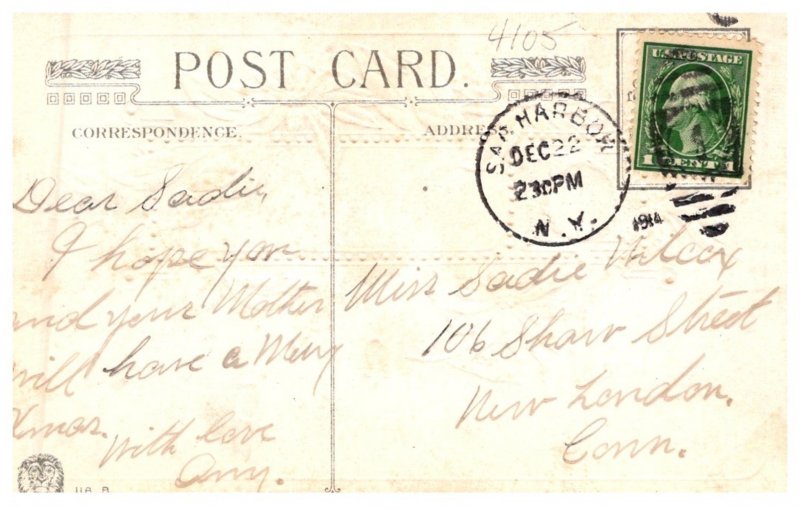 4105
POST CARD.
CORRESPONDENCE.
ADDRESS
U.S. POSTAGE
1 CENT 1
SAG HARBOR
DEC 22
230PM
N.Y.
1914
Dear Sadie,
I hope you
and your Mother
will have a Merry
Xmas.
With love
Amy.
Miss Sadie Wilcox
106 Shaw Street
New London,
Conn.